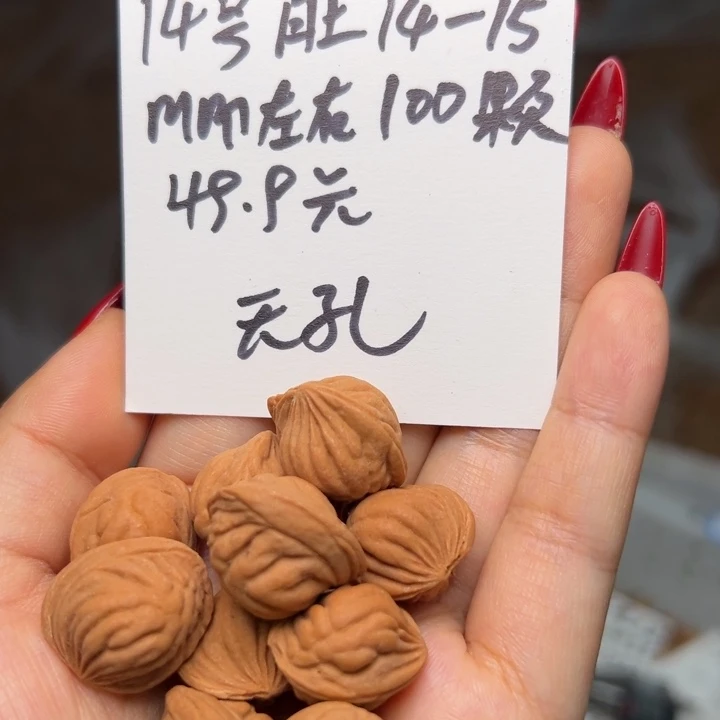 14号肚14-15
mm左右100颗
49.9元
无孔